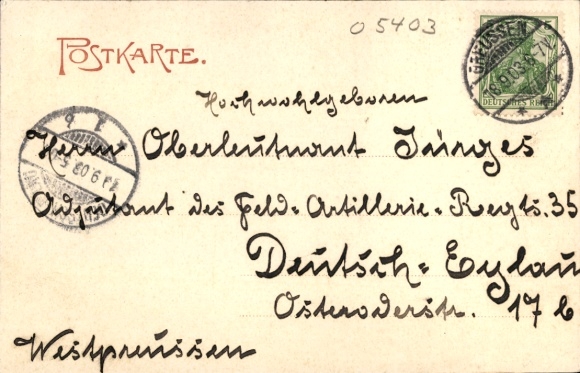 O 5403
POSTKARTE.
5
GREUSSEN
DEUTSCHES REICH
Hochwohlgeboren
Herrn Oberleutnant Jürges
Adjutant des Feld-Artillerie-Regts. 35
Deutsch-Eylau
Osteroderstr. 17 b
Westpreussen